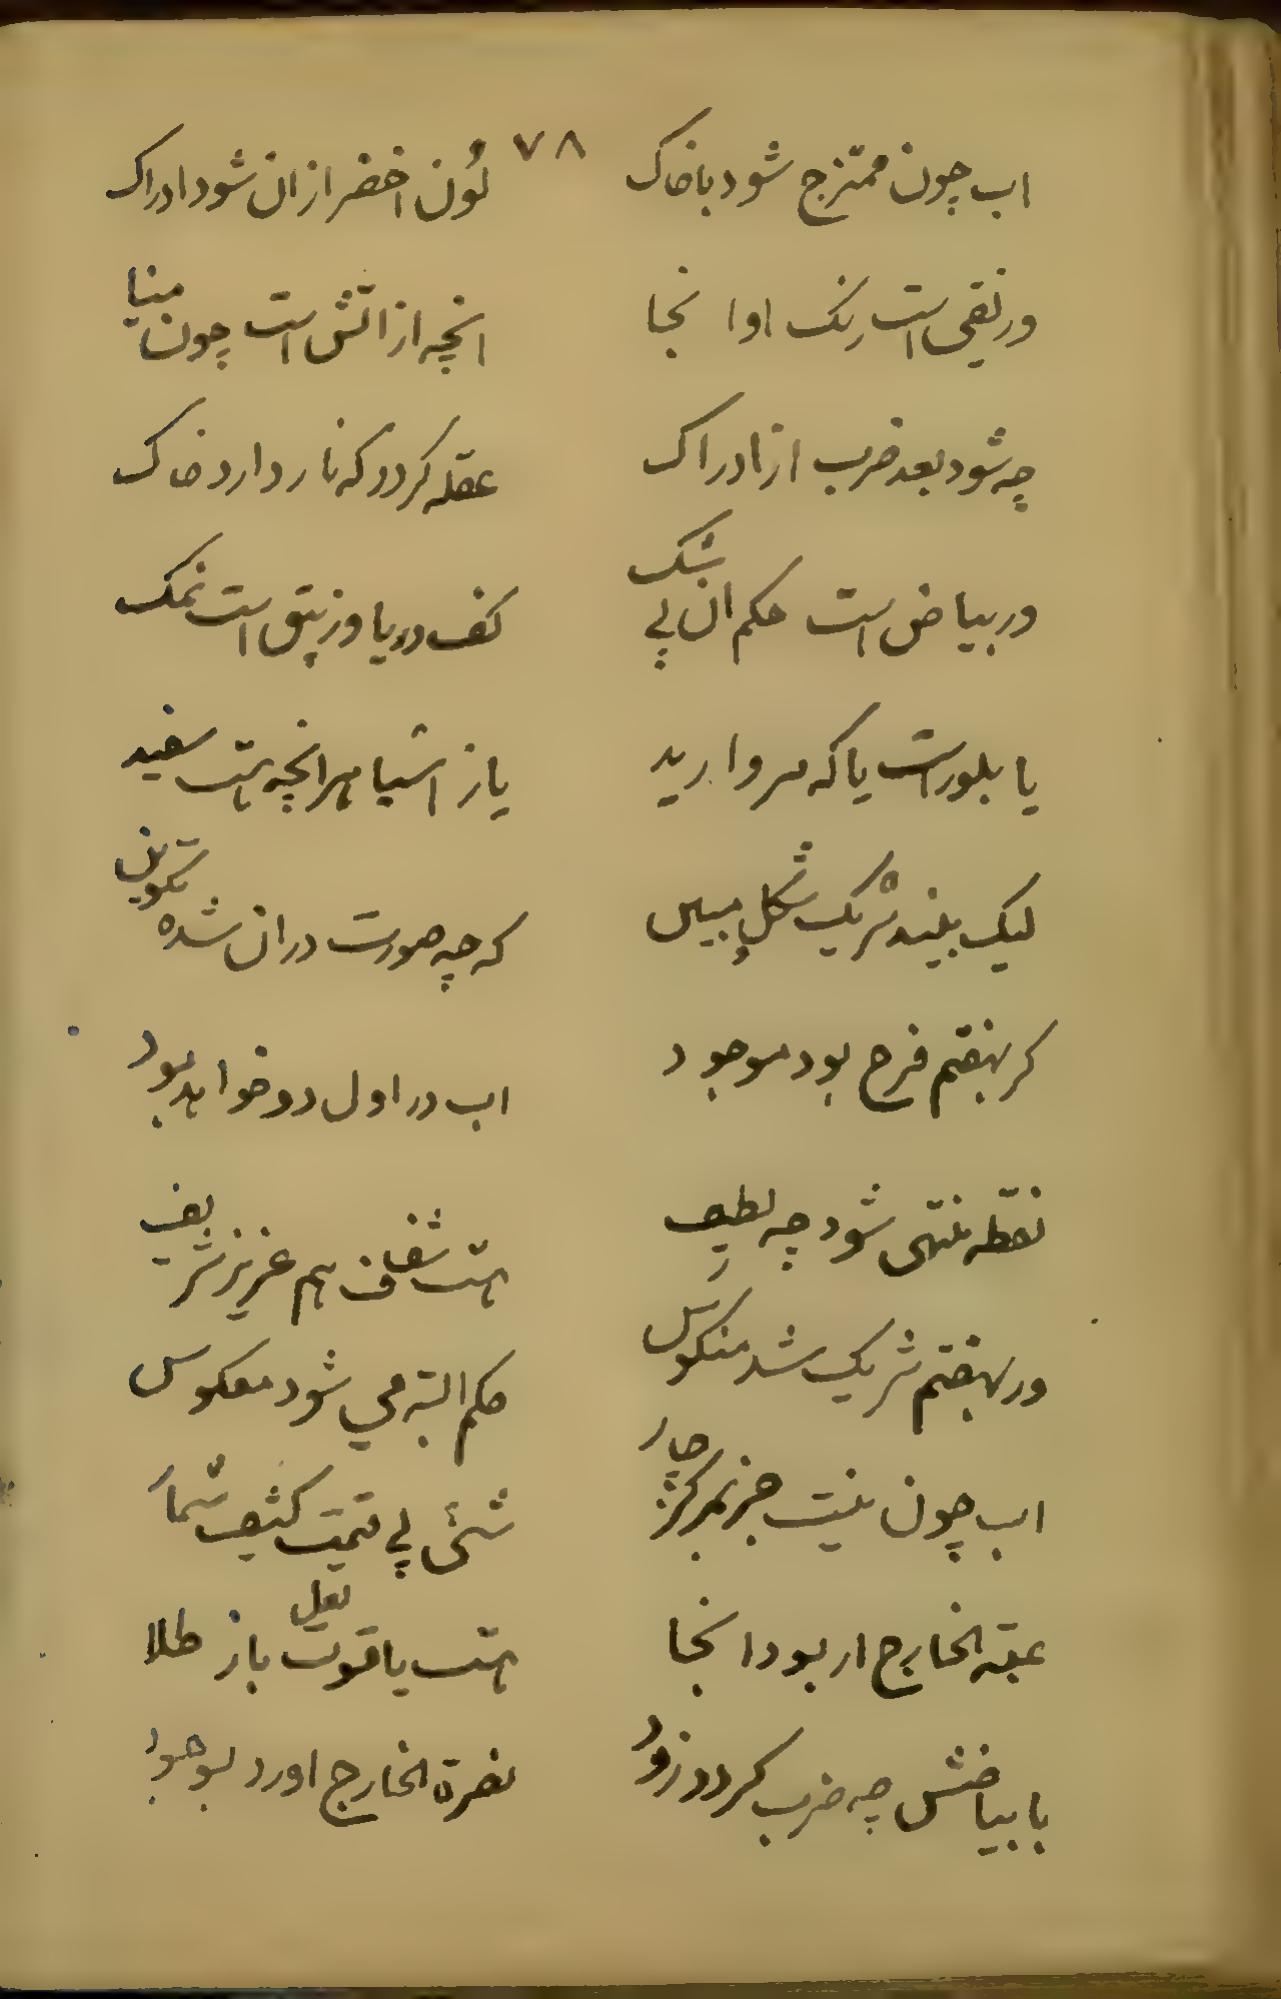 ۷۸
اب چون ممتزج شود باخاک لون اخضر ازان شود ادراک
ور نقی است رنک او انجا انچه از اتش است چون مینا
چه شود بعد ضرب ازادراک عقله کردد که نار دارد خاک
ور بیاض است حکم ان بی شک کف دریا و زیبق است نمک
یا بلور است یا که مروارید یاز اشیا هرانچه هست سفید
لیک بیند شریک شکل مبین که چه صورت دران شده تکوین
کر بهفتم فرح بود موجود اب در اول دو خواهد بود
نقطه منتهی شود چه لطیف هست شفاف هم عزیز شریف
ور بهفتم شریک شد منکوس حکم البته می شود معکوس
اب چون نیست جز بمرکز چار شئی بی قیمت کثیف شمار
عتبة الخارج ار بود انجا هست یاقوت لعل باز طلا
با بیاضش چه ضرب کردد زود نصرة الخارج اورد بوجود